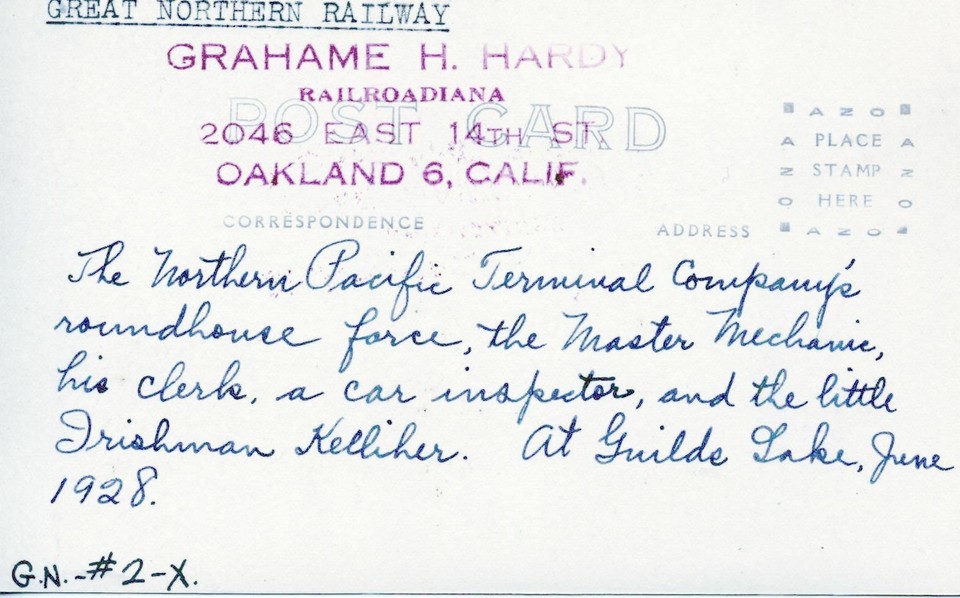 GREAT NORTHERN RAILWAY
GRAHAME H. HARDY
RAILROADIANA
POST CARD
2046 EAST 14TH ST.
OAKLAND 6, CALIF.
AZO
A PLACE A
Z STAMP Z
O HERE O
AZO
CORRESPONDENCE
ADDRESS
The Northern Pacific Terminal Company's
roundhouse force, the Master Mechanic,
his clerk, a car inspector, and the little
Irishman Kelliher. At Guilds Lake, June
1928.
G.N.-#2-X.